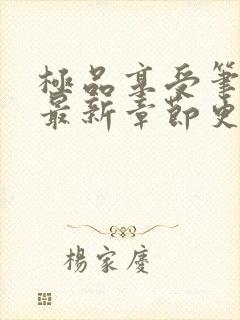 極品享受筆
最新章節史
楊家慶